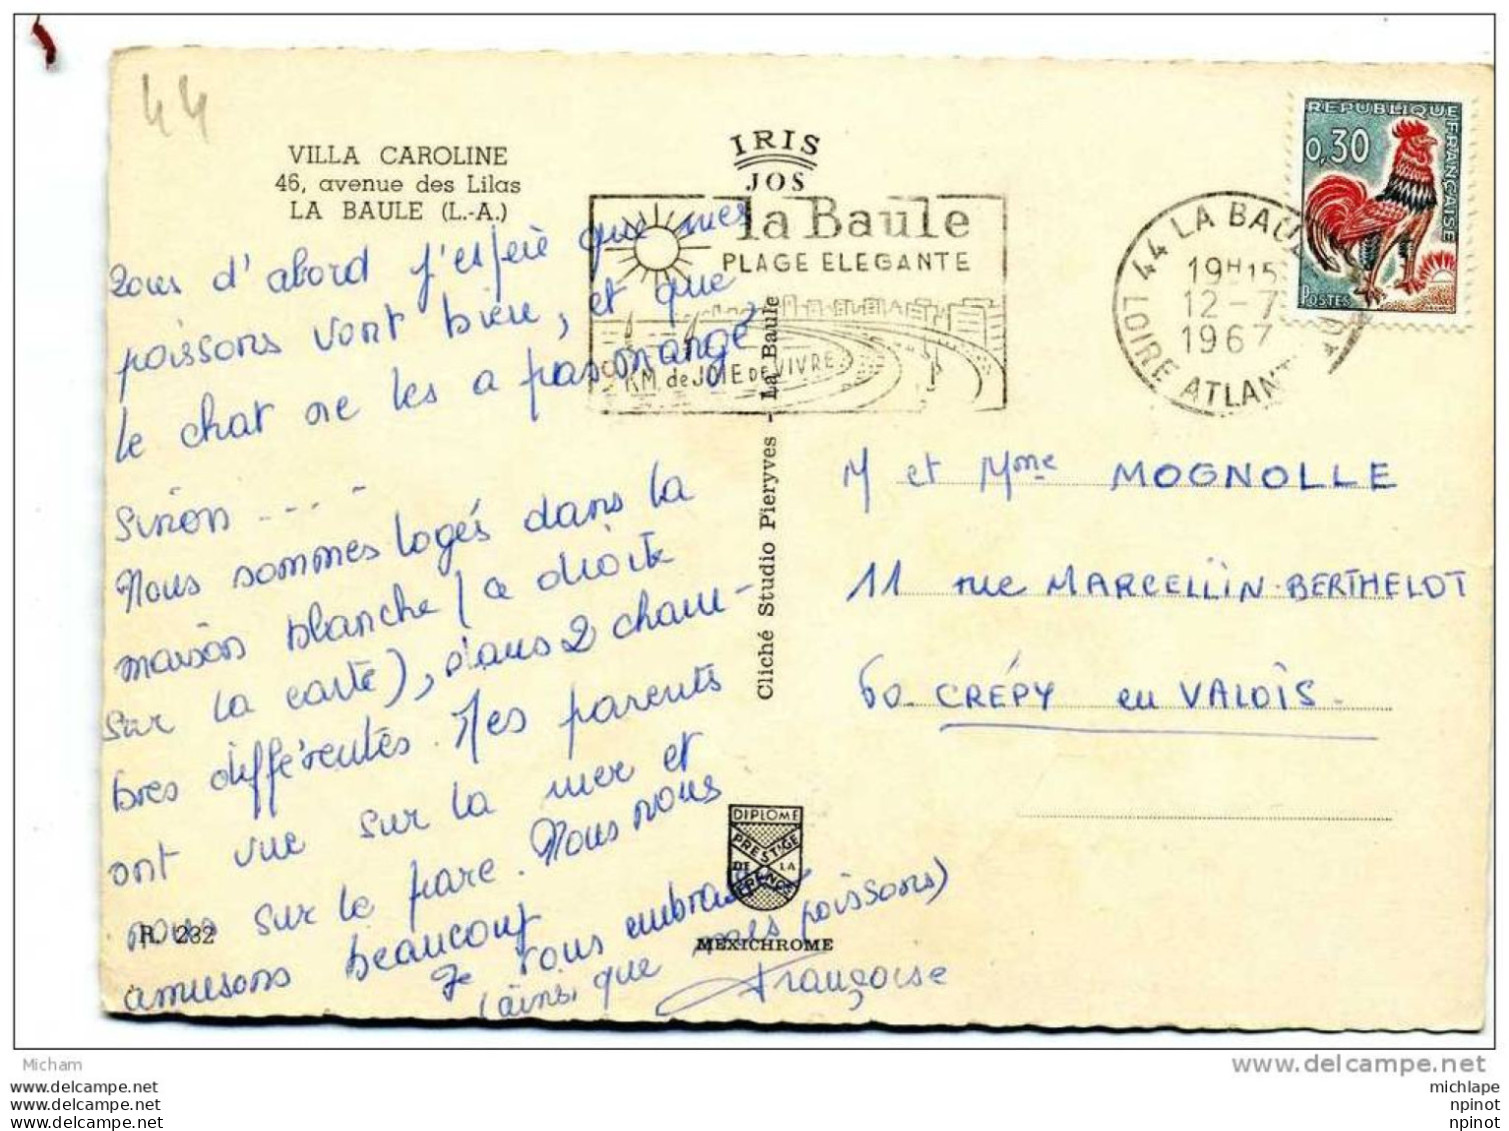 44
VILLA CAROLINE
46, avenue des Lilas
LA BAULE (L.-A.)
IRIS
JOS
la Baule
PLAGE ELEGANTE
KM. de JOIE DE VIVRE
REPUBLIQUE FRANÇAISE
0,30
POSTES
44 LA BAULE
19H15
12-7
1967
LOIRE ATLANT
d'abord j'espère que mes
poissons vont bien, et que
le chat ne les a pas mangé
Sinon ....
Nous sommes logés dans la
maison blanche (a droite
sur la carte), dans 2 cham-
bres différentes. Mes parents
ont vue sur la mer et
nous sur le parc. Nous nous
amusons beaucoup
Je vous embrasse
(ainsi que mes poissons)
Françoise
R. 232
Cliché Studio Pieryves - La Baule
DIPLOME
PRESTIGE
DE LA
FRANCE
MEXICHROME
M et Mme MOGNOLLE
11 rue MARCELLIN-BERTHELOT
60 CRÉPY en VALOIS.
Micham
delcampe.net
www.delcampe.net
www.delcampe.net
www.delcampe.net
michlape
npinot
npinot